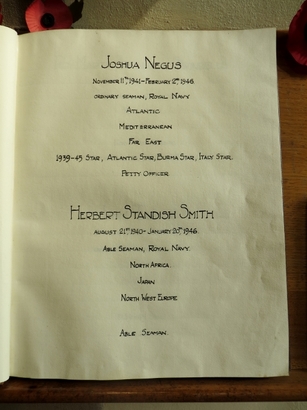 Joshua Negus
November 11th 1941–February 12th 1946.
Ordinary Seaman, Royal Navy
Atlantic
Mediterranean
Far East
1939-45 Star, Atlantic Star, Burma Star, Italy Star.
Petty Officer
Herbert Standish Smith
August 21st 1940–January 20th 1946.
Able Seaman, Royal Navy.
North Africa.
Japan
North West Europe
Able Seaman.